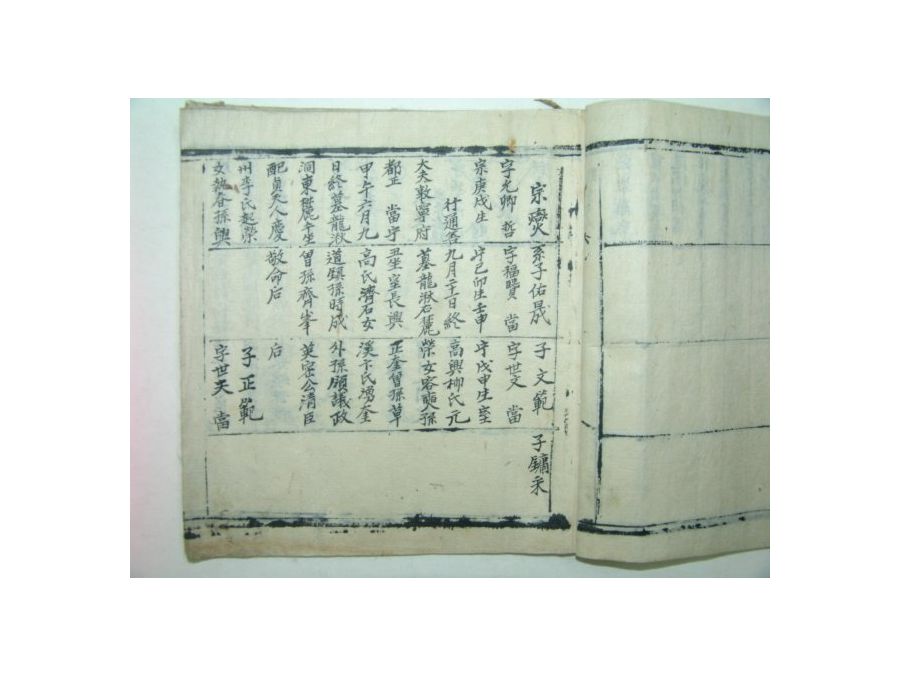 宗燮
字允卿 哲
宗庚戌生
行通政
大夫敦寧府
都正 當宁
甲午六月九
日終墓龍湫
洞東麓壬坐
配貞夫人慶
州李氏起榮
女執容孫興
系子佑晟
字福賢 當
宁己卯生壬申
九月二十日終
墓龍湫右麓
丑坐室長興
高氏濟石女
道鎭孫時成
曾孫齊峯
敬命后
子文範
字世文 當
宁戊申生室
高興柳氏元
榮女容奭孫
正奎曾孫草
溪卞氏湧奎
外孫領議政
英密公清臣
后
子正範
字世夫 當
子鏞采